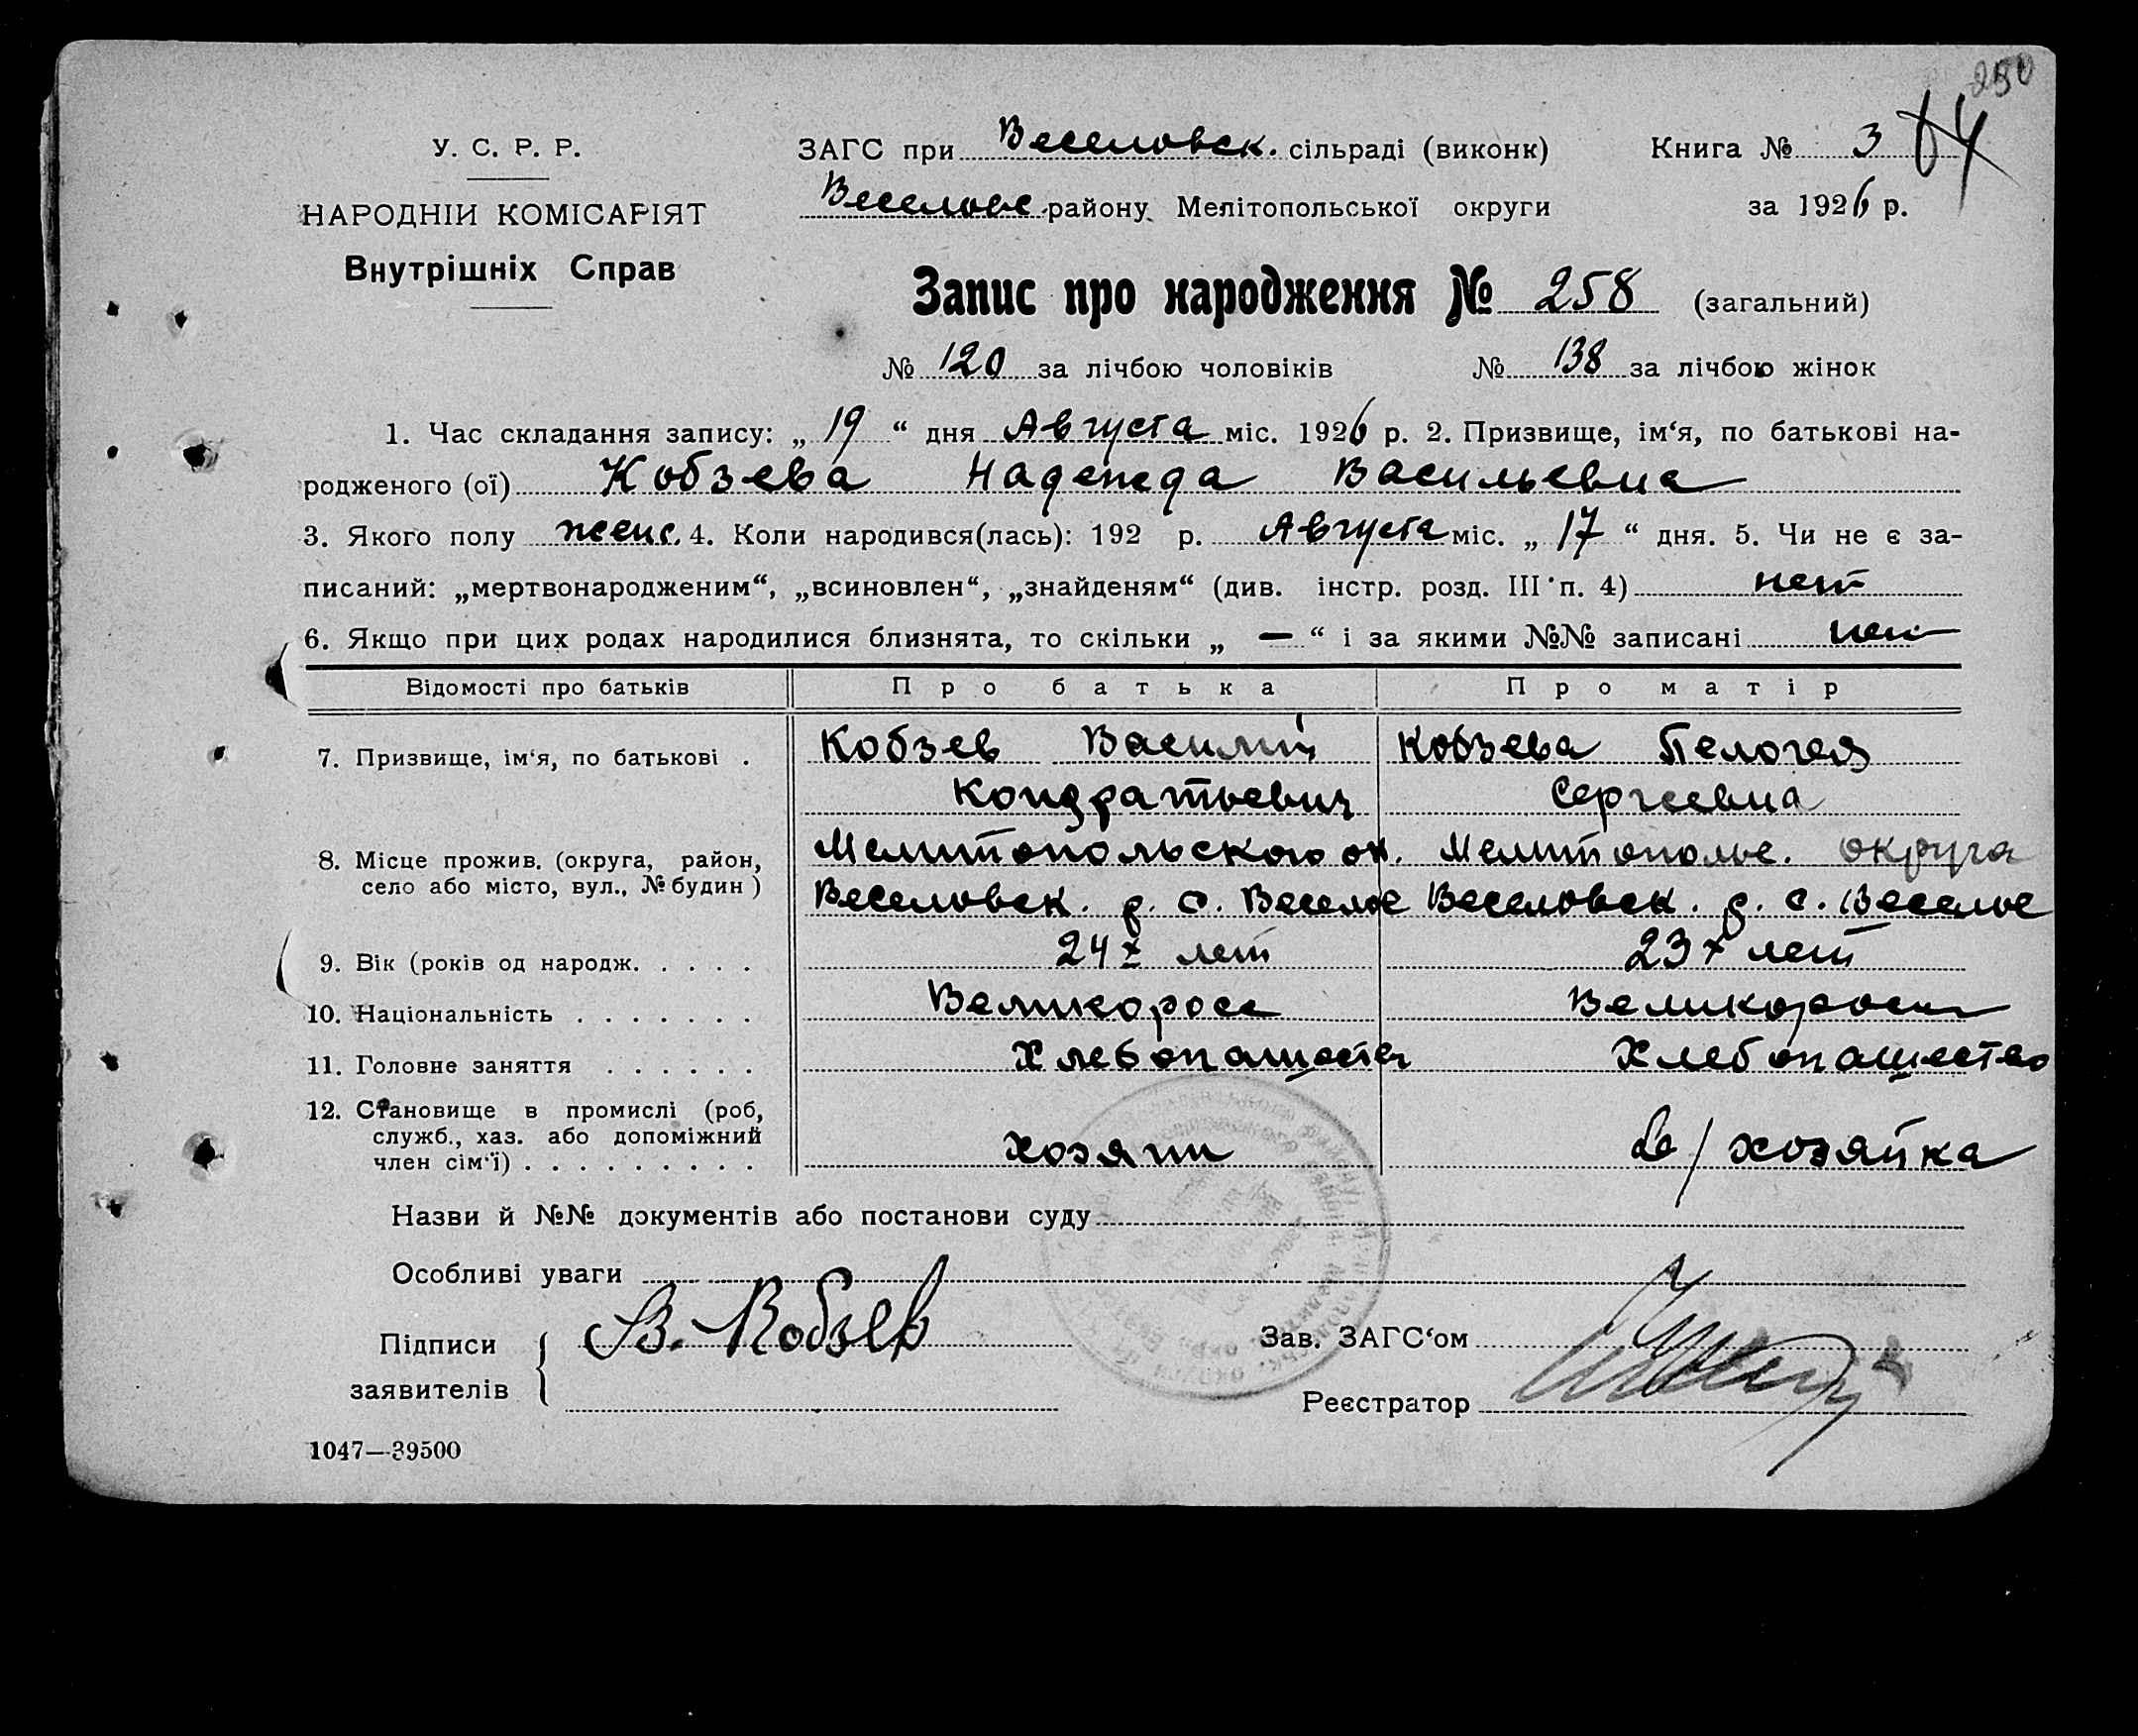 250
У. С. Р. Р.
НАРОДНІЙ КОМІСАРІЯТ
Внутрішніх Справ
ЗАГС при Веселовск. сільраді (виконк) Книга № 3 84
Веселовс. району Мелітопольської округи за 1926 р.
Запис про народження № 258 (загальний)
№ 120 за лічбою чоловіків № 138 за лічбою жінок
1. Час складання запису: „ 19 “ дня Августа міс. 1926 р. 2. Призвище, ім‘я, по батькові на-
родженого (ої) Кобзева Надежда Васильевна
3. Якого полу женс. 4. Коли народився(лась): 192 р. Августа міс. „ 17 “ дня. 5. Чи не є за-
писаний: „мертвонародженим“, „всиновлен“, „знайденям“ (див. інстр. розд. III п. 4) нет
6. Якщо при цих родах народилися близнята, то скільки „ — “ і за якими №№ записані нет
Відомості про батьків Про батька Про матір
7. Призвище, ім‘я, по батькові . Кобзев Василий Кобзева Пелогея
Кондратьевич Сергеевна
8. Місце прожив. (округа, район, Мелитопольского ок. Мелитопольс. округа
село або місто, вул., № будин ) Веселовск. р. с. Веселое Веселовск. р. с. Веселое
9. Вік (років од народж. . . . . 24х лет 23х лет
10. Національність . . . . . . . Великоросс Великоросс
11. Головне заняття . . . . . . Хлебопашество Хлебопашество
12. Становище в промислі (роб,
служб., хаз. або допоміжний
член сім‘ї) . . . . . . . . . Хозяин д/хозяйка
Назви й №№ документів або постанови суду
Особливі уваги
Підписи
заявителів
В. Кобзев
Зав. ЗАГС‘ом
Реєстратор
1047—39500